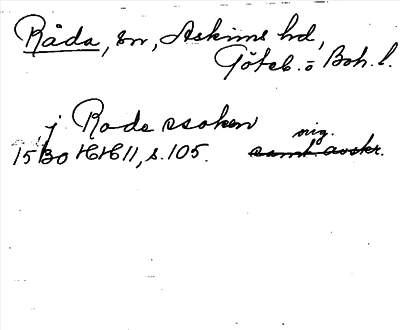 Råda, sn, Askims hd,
Göteb. o Boh. l.
j Rode ssoken
orig.
1530 HH 11, s. 105. samt avskr.